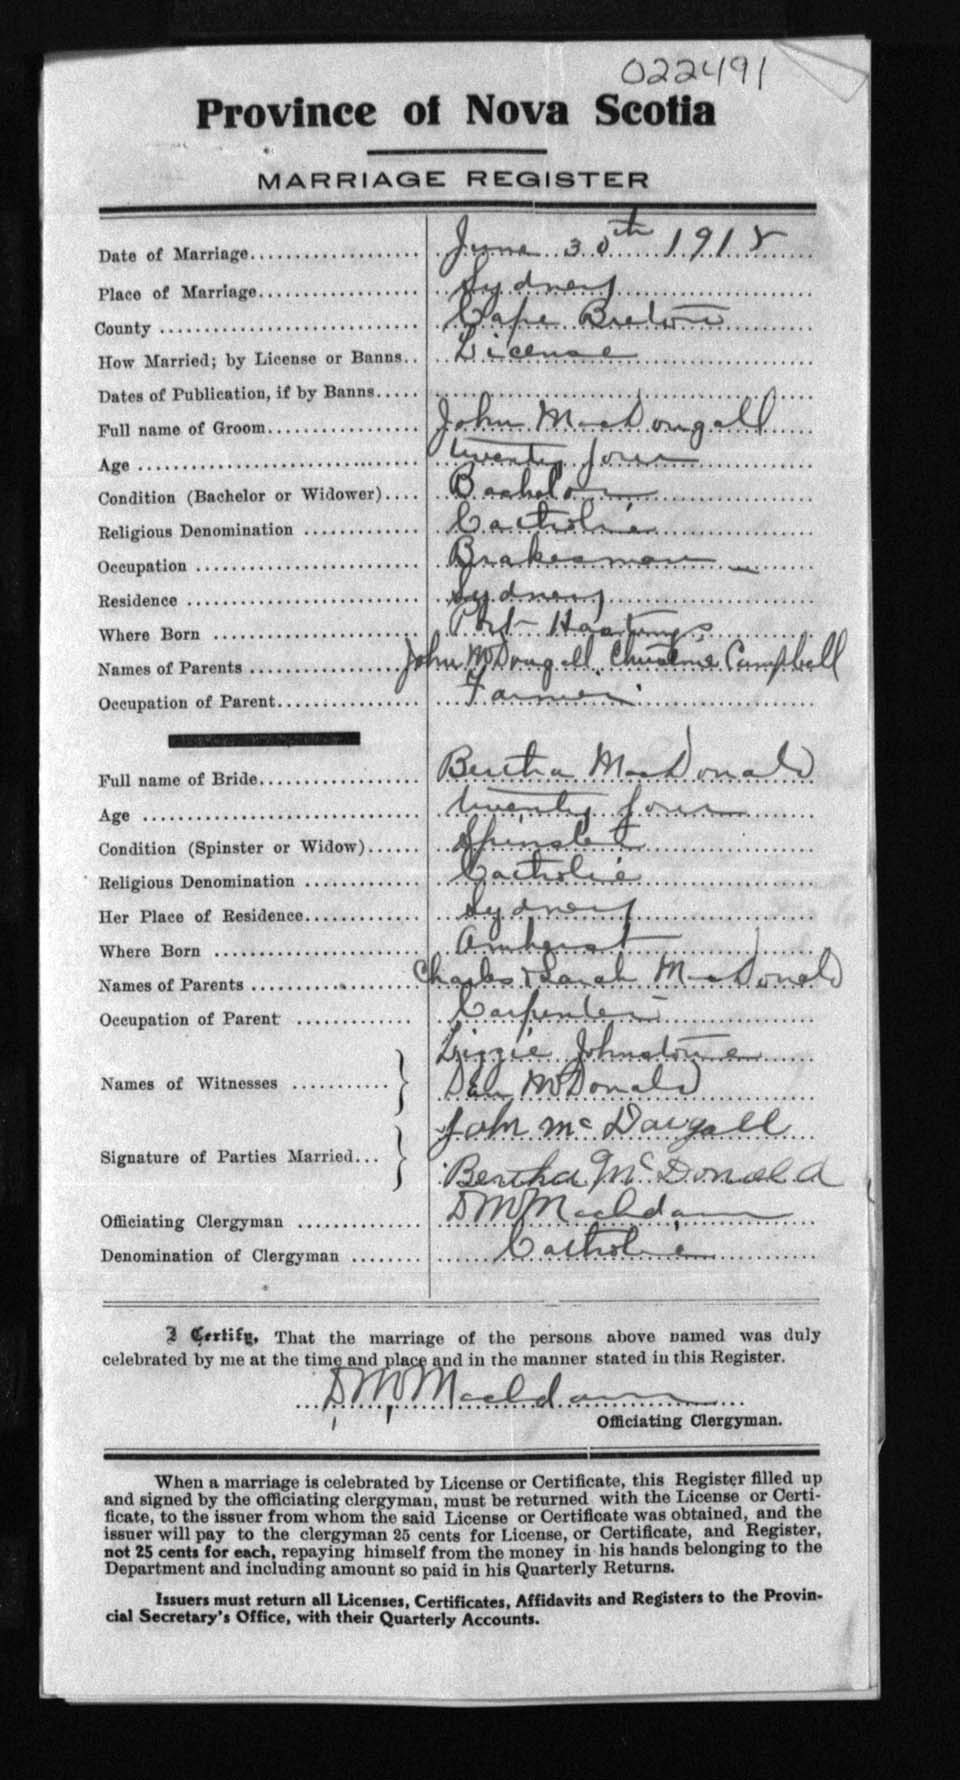 022491
Province of Nova Scotia
MARRIAGE REGISTER
Date of Marriage.................. June 30th 1918
Place of Marriage................. Sydney
County ........................... Cape Breton
How Married; by License or Banns.. License
Dates of Publication, if by Banns.....
Full name of Groom................ John MacDougall
Age .............................. twenty four
Condition (Bachelor or Widower).... Bachelor
Religious Denomination ............ Catholic
Occupation ....................... Brakesman
Residence ........................ Sydney
Where Born ....................... Port Hastings
Names of Parents ................. John McDougall Christine Campbell
Occupation of Parent.............. Farmer
Full name of Bride................ Bertha MacDonald
Age .............................. twenty four
Condition (Spinster or Widow)...... Spinster
Religious Denomination ............ Catholic
Her Place of Residence............ Sydney
Where Born ....................... Amherst
Names of Parents ................. Charles & Sarah MacDonald
Occupation of Parent ............. Carpenter
Lizzie Johnstone
Names of Witnesses ........... } Dan McDonald
John McDougall
Signature of Parties Married... } Bertha McDonald
Officiating Clergyman ............ D M MacAdam
Denomination of Clergyman ........ Catholic
I Certify, That the marriage of the persons above named was duly
celebrated by me at the time and place and in the manner stated in this Register.
D M MacAdam
Officiating Clergyman.
When a marriage is celebrated by License or Certificate, this Register filled up
and signed by the officiating clergyman, must be returned with the License or Certi-
ficate, to the issuer from whom the said License or Certificate was obtained, and the
issuer will pay to the clergyman 25 cents for License, or Certificate, and Register,
not 25 cents for each, repaying himself from the money in his hands belonging to the
Department and including amount so paid in his Quarterly Returns.
Issuers must return all Licenses, Certificates, Affidavits and Registers to the Provin-
cial Secretary's Office, with their Quarterly Accounts.